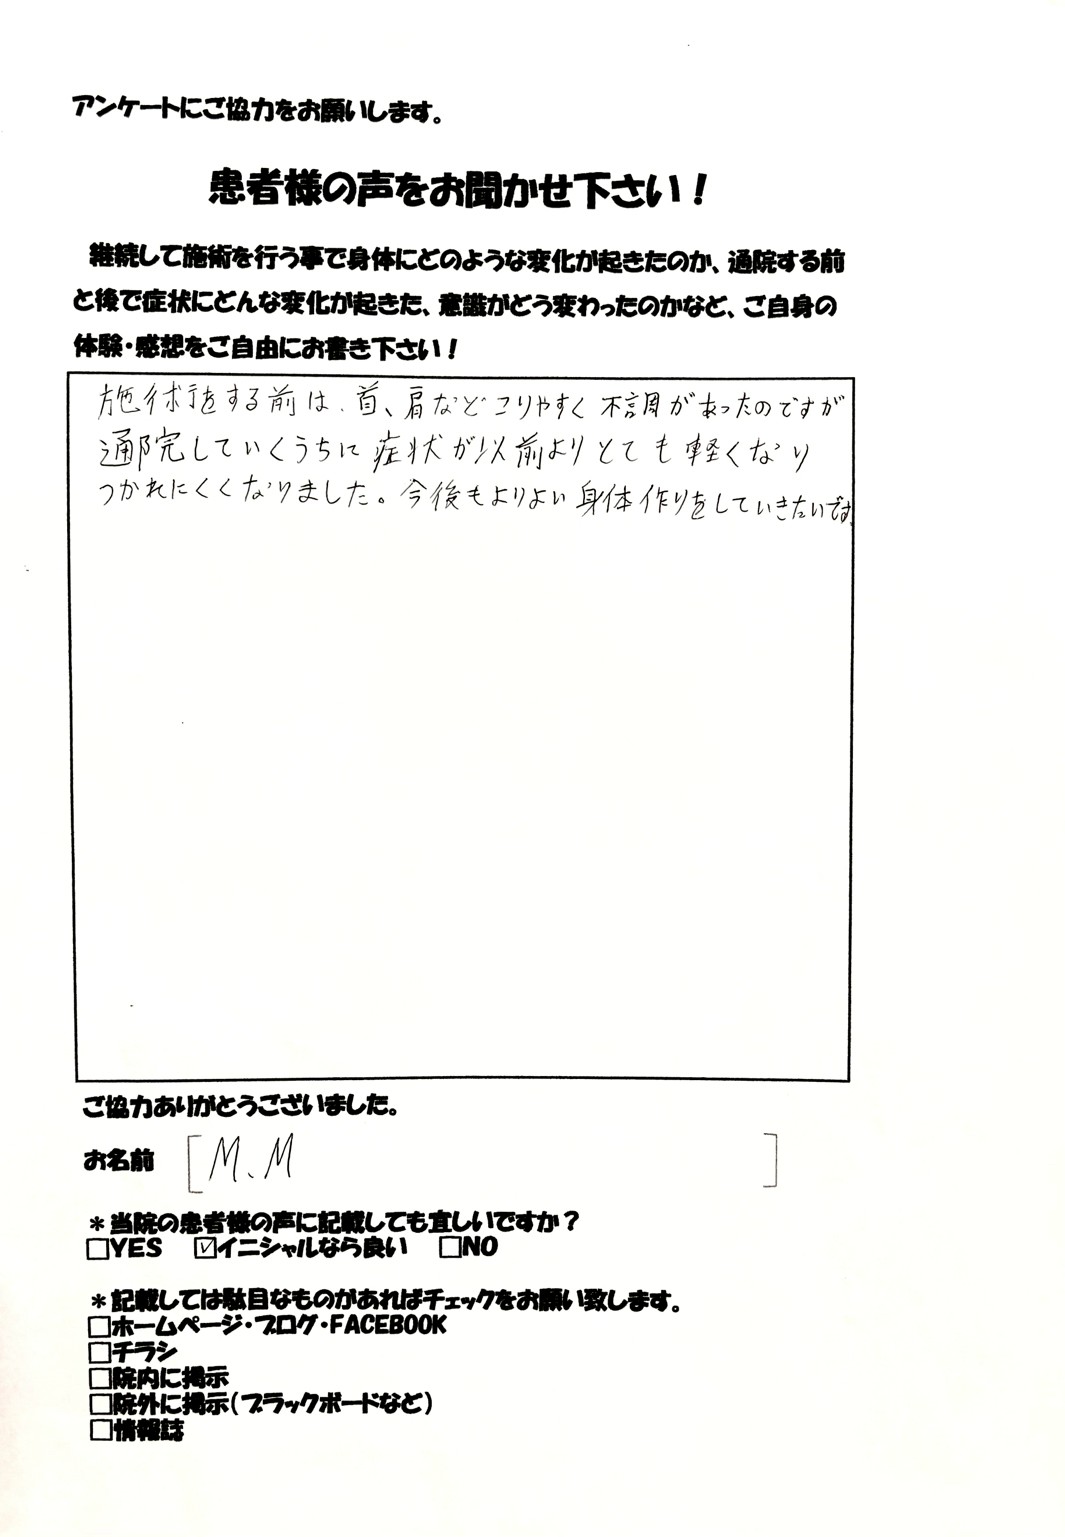 アンケートにご協力をお願いします。
患者様の声をお聞かせ下さい！
継続して施術を行う事で身体にどのような変化が起きたのか、通院する前
と後で症状にどんな変化が起きた、意識がどう変わったのかなど、ご自身の
体験・感想をご自由にお書き下さい！
施術をする前は、首、肩などこりやすく不調があったのですが
通院していくうちに症状が以前よりとても軽くなり
つかれにくくなりました。今後もよりよい身体作りをしていきたいです。
ご協力ありがとうございました。
お名前 [M.M ]
＊当院の患者様の声に記載しても宜しいですか？
□YES ☑イニシャルなら良い □NO
＊記載しては駄目なものがあればチェックをお願い致します。
□ホームページ・ブログ・FACEBOOK
□チラシ
□院内に掲示
□院外に掲示（ブラックボードなど）
□情報誌